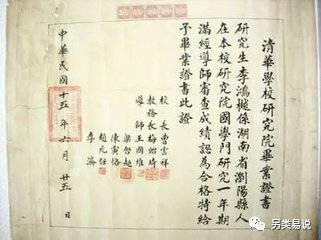 清華學校研究院畢業證書
研究生李鴻樾係湖南省瀏陽縣人
在本校研究院國學門研究一年期
滿經導師審查成績認為合格特給
予畢業證書此證
校長曹雲祥
教務長梅貽琦
導師王國維
梁啟超
陳寅恪
趙元任
李濟
中華民國十五年六月廿五日
另类易说